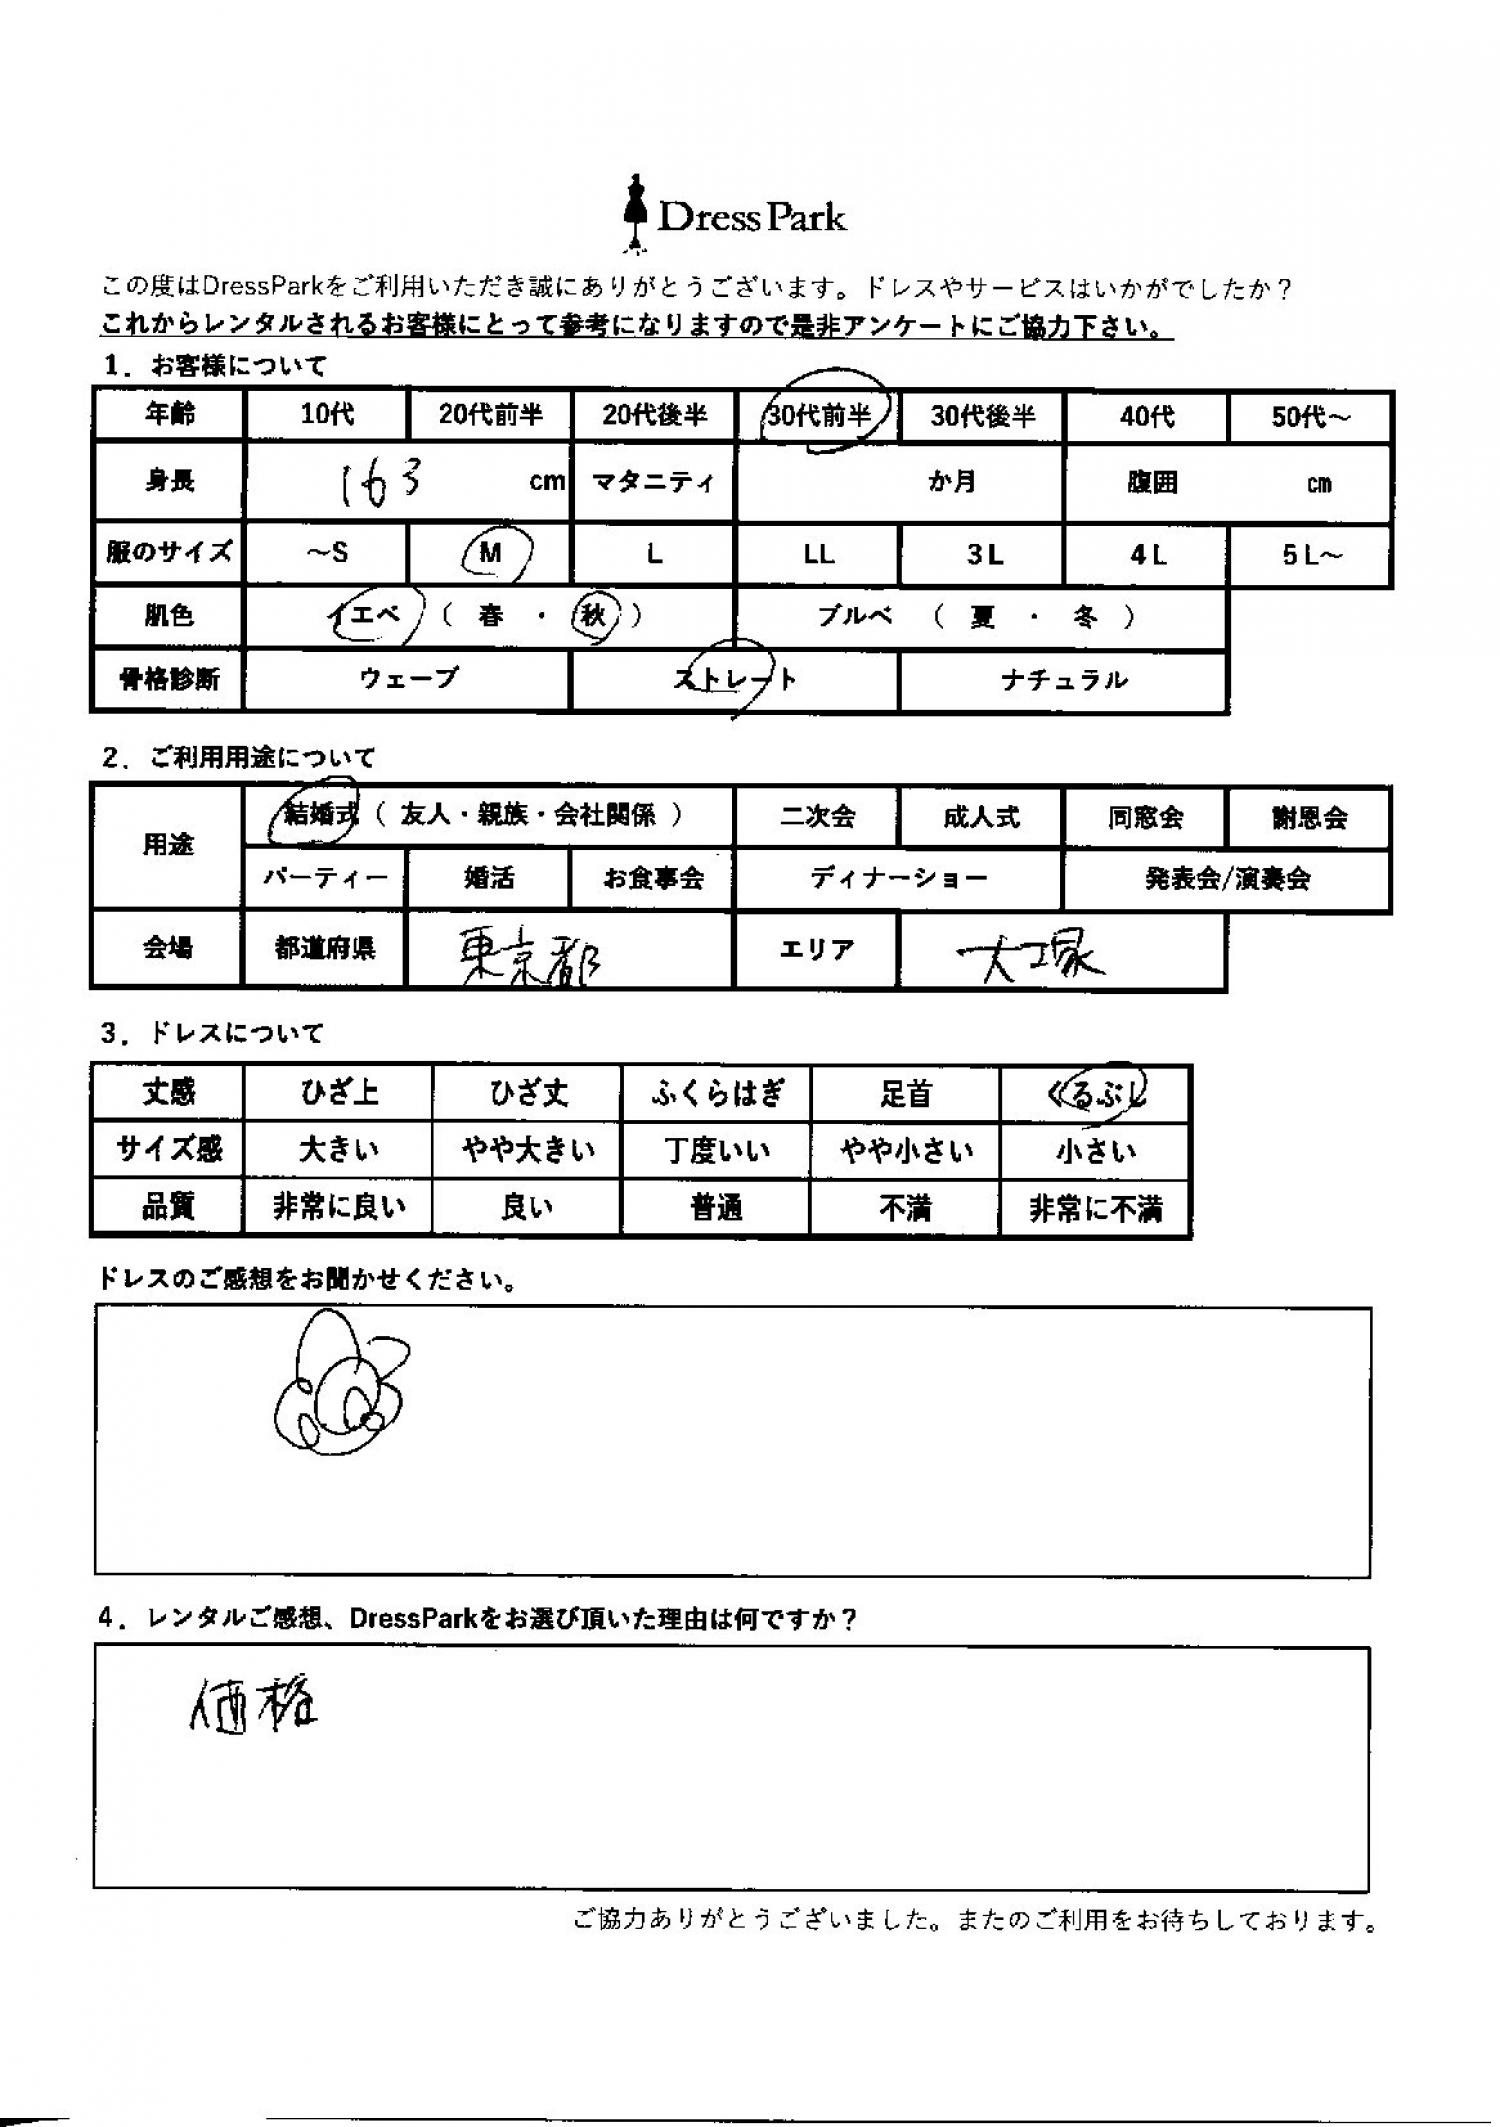 Dress Park
この度はDressParkをご利用いただき誠にありがとうございます。ドレスやサービスはいかがでしたか？
これからレンタルされるお客様にとって参考になりますので是非アンケートにご協力下さい。
1．お客様について
年齢 10代 20代前半 20代後半 30代前半 30代後半 40代 50代～
身長 163 cm マタニティ か月 腹囲 ㎝
服のサイズ ～S M L LL 3L 4L 5L～
肌色 イエベ （ 春 ・ 秋 ） ブルベ （ 夏 ・ 冬 ）
骨格診断 ウェーブ ストレート ナチュラル
2．ご利用用途について
用途 結婚式（ 友人・親族・会社関係 ） 二次会 成人式 同窓会 謝恩会
パーティー 婚活 お食事会 ディナーショー 発表会/演奏会
会場 都道府県 東京都 エリア 大塚
3．ドレスについて
丈感 ひざ上 ひざ丈 ふくらはぎ 足首 くるぶし
サイズ感 大きい やや大きい 丁度いい やや小さい 小さい
品質 非常に良い 良い 普通 不満 非常に不満
ドレスのご感想をお聞かせください。
4．レンタルご感想、DressParkをお選び頂いた理由は何ですか？
価格
ご協力ありがとうございました。またのご利用をお待ちしております。